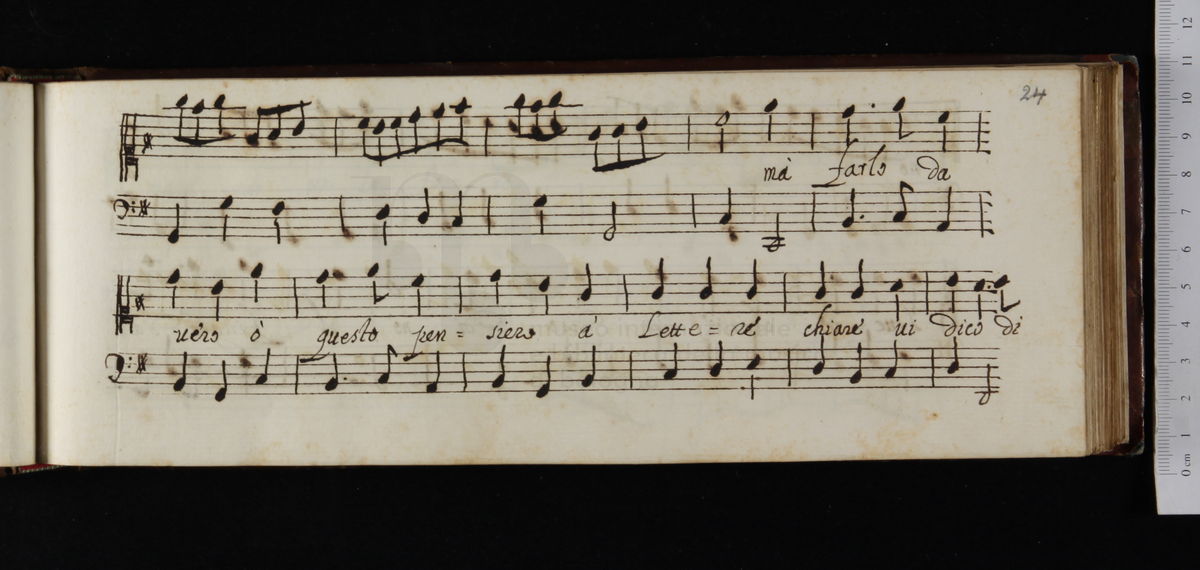 24
mà farlo da
vero ò questo pen = siero á Lette = re chiare vi dico di
0 cm 1 2 3 4 5 6 7 8 9 10 11 12